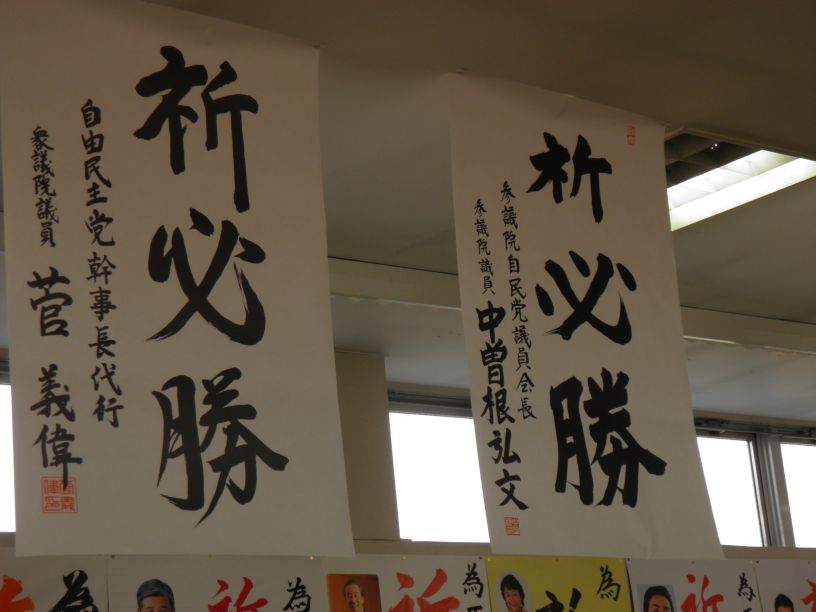 祈必勝
参議院自民党議員会長
参議院議員 中曽根弘文
祈必勝
自由民主党幹事長代行
衆議院議員 菅義偉
祈
為
祈
為
祈
為
為
祈
為
祈